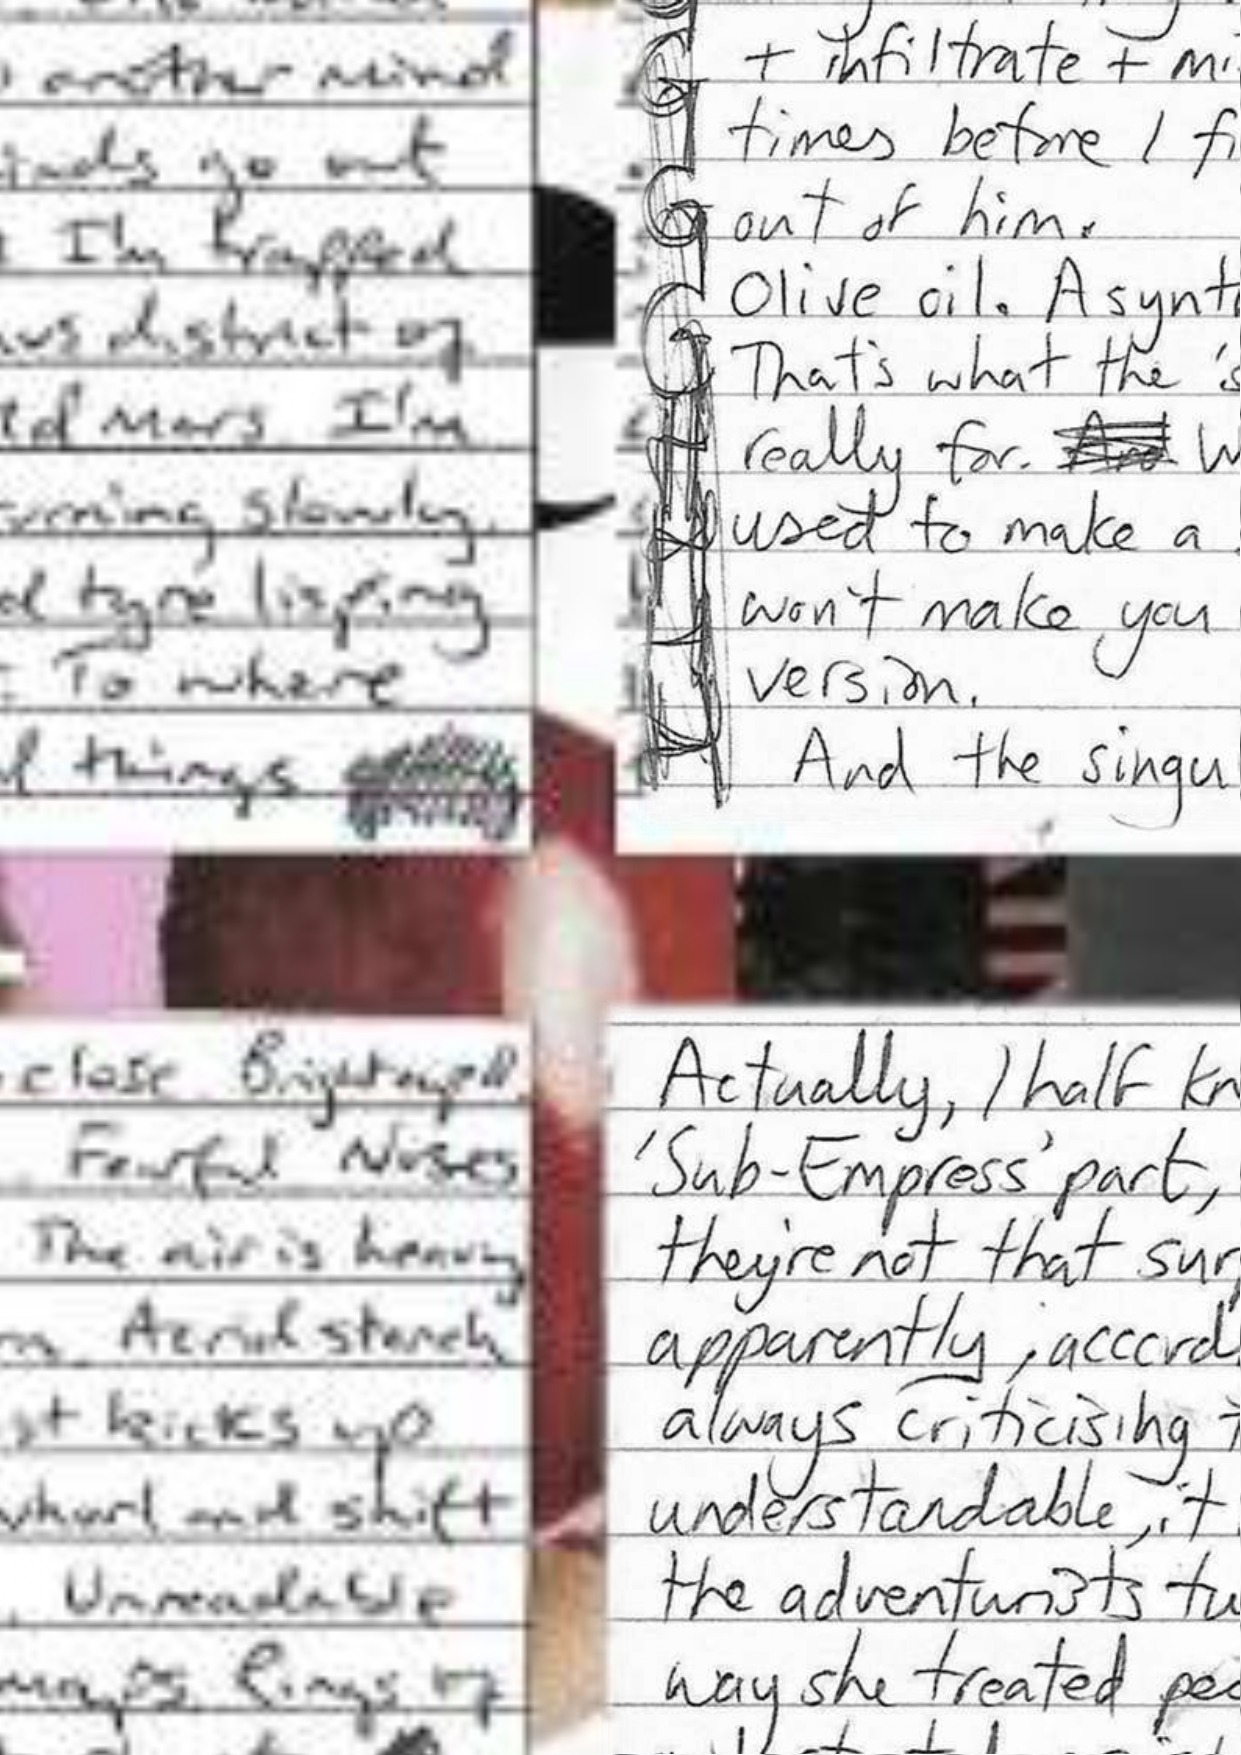 another mind
inds go out
I'm trapped
district of
ed Mars. I'm
urning slowly.
tyre lisping
To where
things
+ infiltrate + mi
times before I fi
out of him.
Olive oil. A synt
That's what the 's
really for. W
used to make a
won't make you
version.
And the singu
close Brighteyed
Fearful Noises
The air is heavy
Acrid stench
st kicks up
whorl and shift
Unreadable
maps Rings of
Actually, I half kn
'Sub-Empress' part,
they're not that sur
apparently, accord
always criticising t
understandable, it
the adventurists tu
way she treated peo